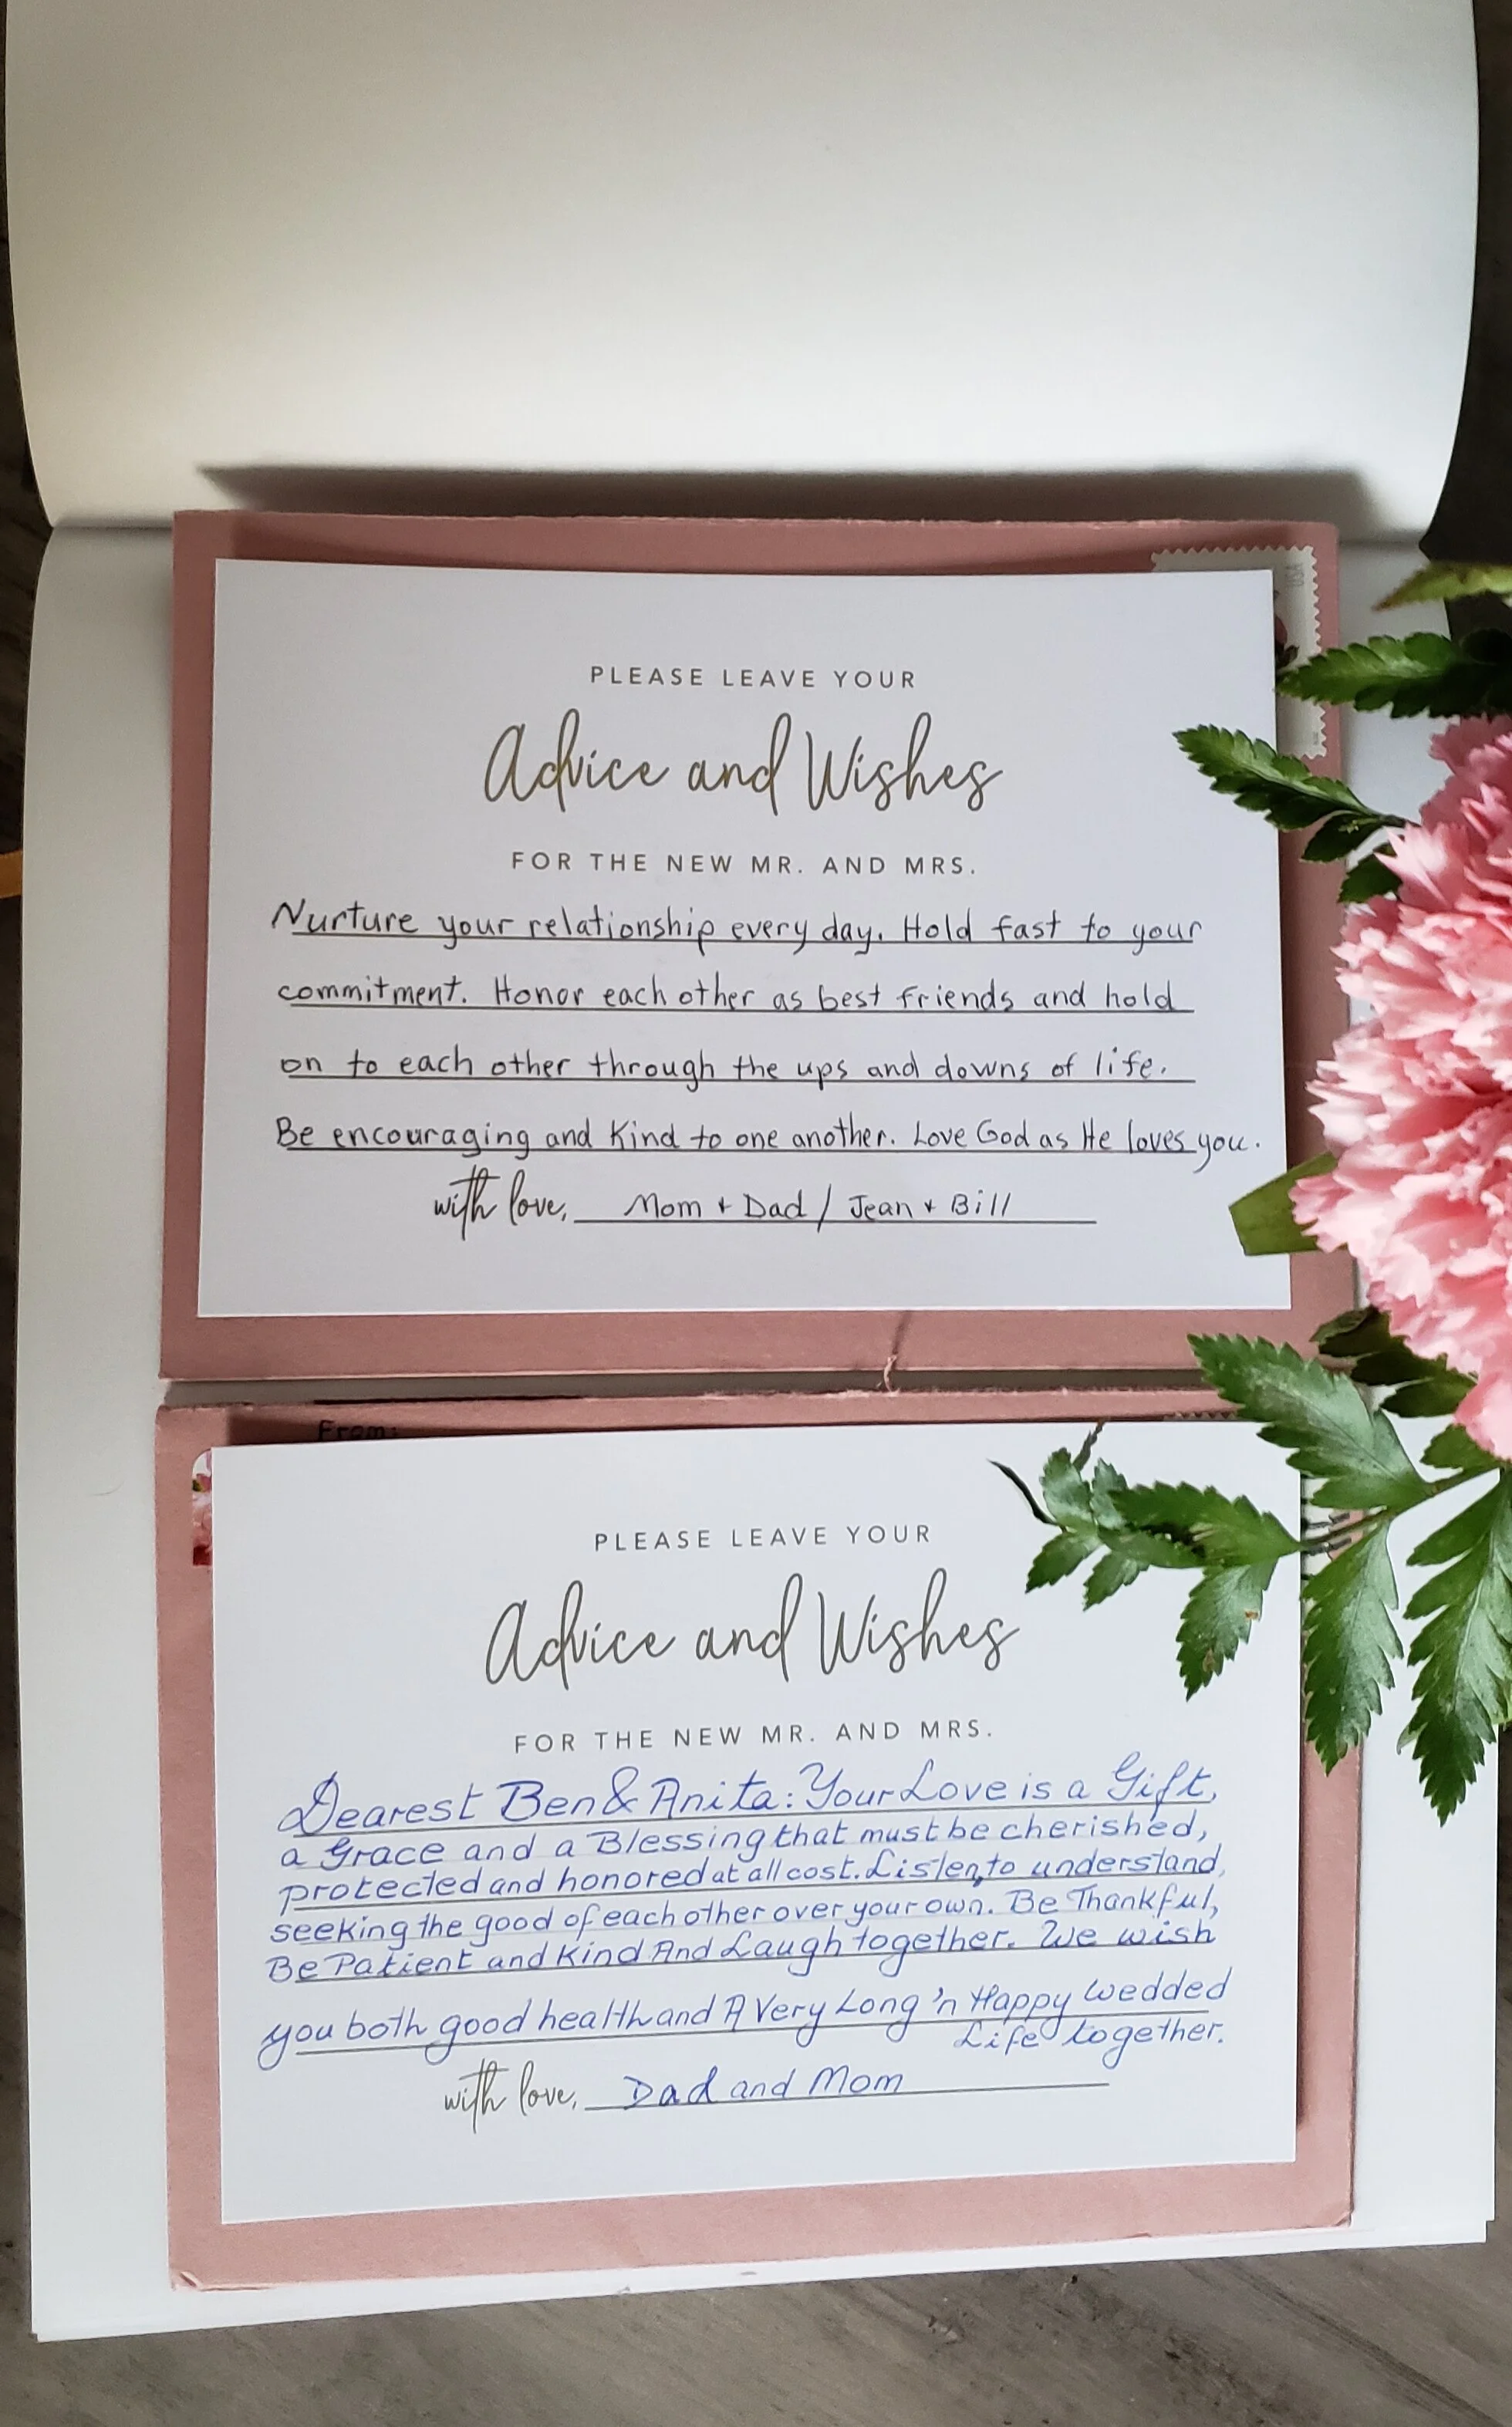 PLEASE LEAVE YOUR
Advice and Wishes
FOR THE NEW MR. AND MRS.
Nurture your relationship every day. Hold fast to your
commitment. Honor each other as best friends and hold
on to each other through the ups and downs of life.
Be encouraging and Kind to one another. Love God as He loves you.
with love, Mom + Dad / Jean + Bill
From:
PLEASE LEAVE YOUR
Advice and Wishes
FOR THE NEW MR. AND MRS.
Dearest Ben & Anita: Your Love is a Gift,
a Grace and a Blessing that must be cherished,
protected and honored at all cost. Listen, to understand,
seeking the good of each other over your own. Be Thankful,
Be Patient and Kind And Laugh together. We wish
you both good health and A Very Long 'n Happy wedded
Life together.
with love, Dad and Mom